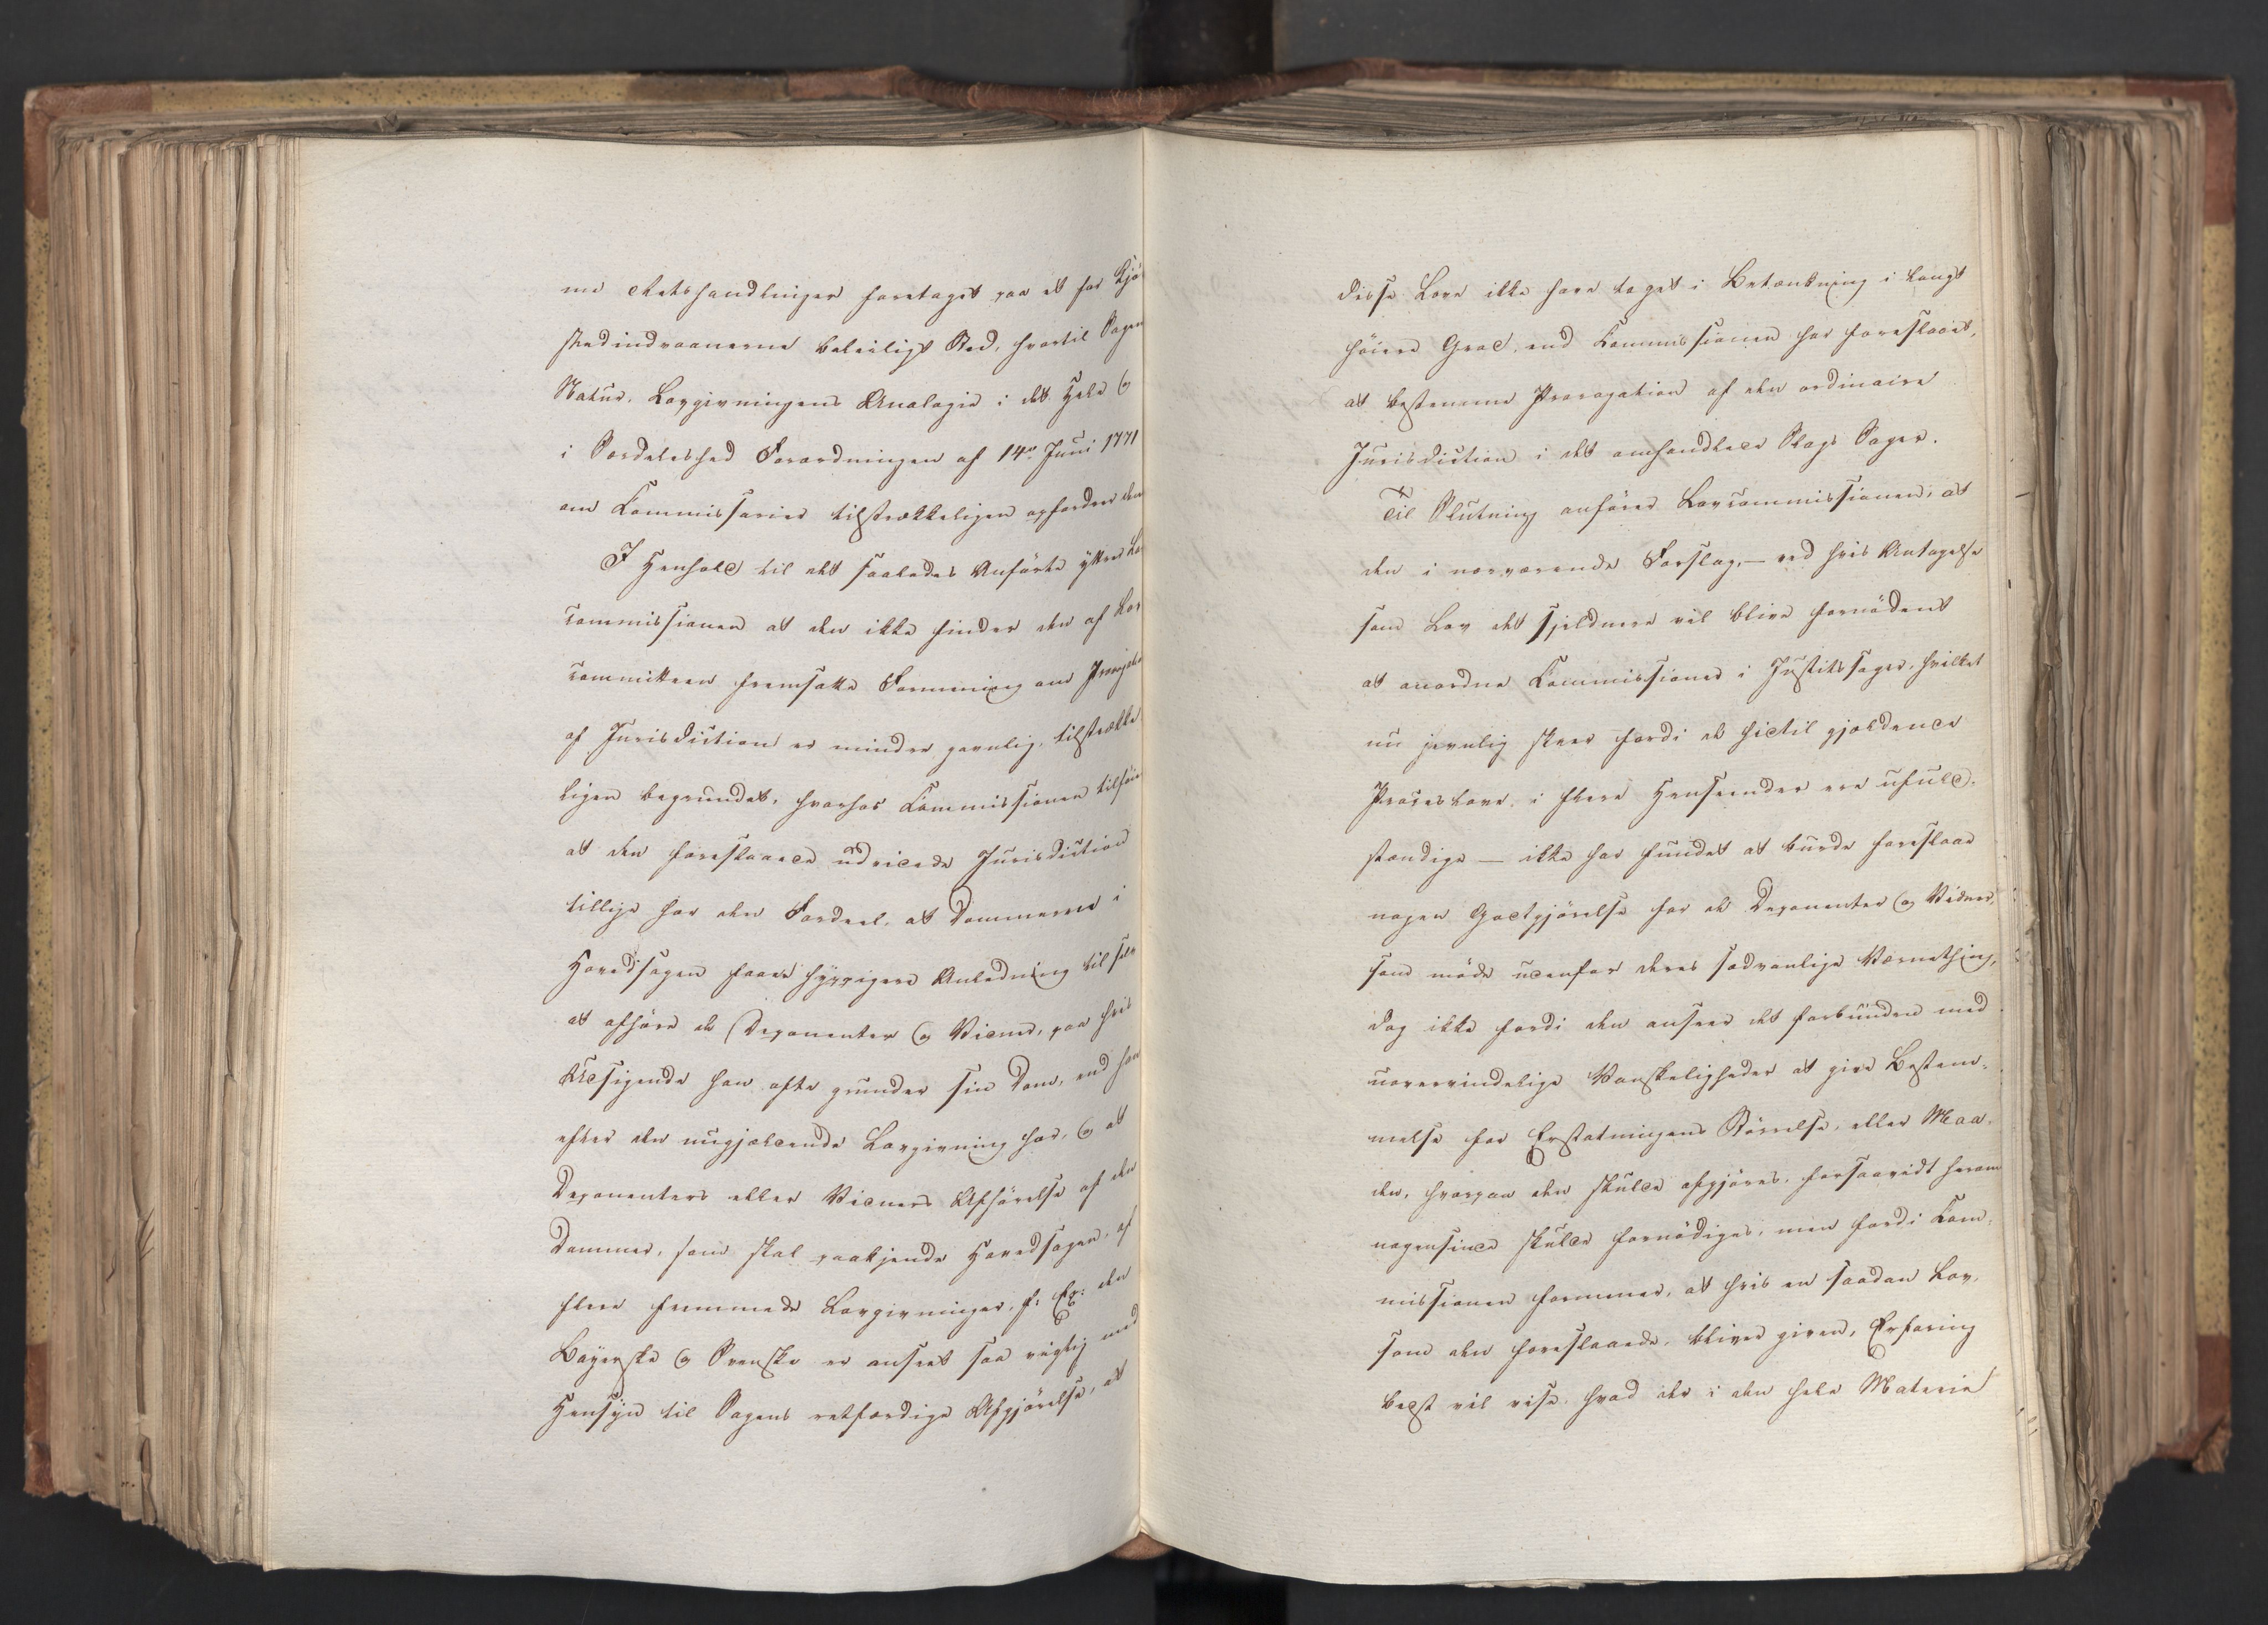 me Retshandlinger foretaget paa et for Kjö
stedindvaanerne beleiligt Sted, hvortil Sagen
Natur, Lovgivningens Analogie i det Hele og
i Særdeleshed Forordningen af 14de Juni 1771
om Commissarier tilstrækkeligen opfordrer dem
I Henhold til det saaledes Anförte yttrer Lov
commissionen at den ikke finder den af Lov
committeen fremsatte Formening om Prorogation
af Jurisdiction er mindre gavnlig, tilstrække
ligen begrundet, hvorhos Commissionen tilföier
at den foreslaaede udvidede Jurisdiction
tillige har den Fordeel, at Dommeren i
Hovedsagen faaer hyppigere Anledning til selv
at afhöre de Deponenter og Vidner, paa hvis
Udsigende han ofte grunder sin Dom, end han
efter den nugjældende Lovgivning har, og at
Deponenters eller Vidners Afhörelse af den
Dommer, som skal paakjende Hovedsagen, af
flere fremmede Lovgivninger, f: Ex: den
Bayerske og Svenske er anseet saa vigtig med
Hensyn til Sagens retfærdige Afgjörelse, at
disse Love ikke have taget i Betænkning i langt
höiere Grad, end Commissionen har foreslaaet,
at bestemme Prorogation af den ordinaire
Jurisdiction i det omhandlede Slags Sager.
Til Slutning anförer Lovcommissionen, at
den i nærværende Forslag, — ved hvis Antagelse
som Lov det sjeldnere vil blive fornödent
at anordne Commissioner i Justitssager, hvilket
nu jevnlig skeer fordi de hidtil gjældende
Proceslove i flere Henseender ere ufuld-
stændige — ikke har fundet at burde foreslaae
nogen Godtgjörelse for de Deponenter og Vidner,
som möde udenfor deres sædvanlige Værnething,
dog ikke fordi den anseer det forbunden med
uovervindelige Vanskeligheder at give Bestem-
melse for Erstatningens Störrelse, eller Maa-
den, hvorpaa den skulde afgjöres, forsaavidt herom
nogensinde skulde fornödiges, men fordi Com-
missionen formener, at hvis en saadan Lov,
som den foreslaaede, bliver given, Erfaring
bedst vil vise, hvad der i den hele Materie